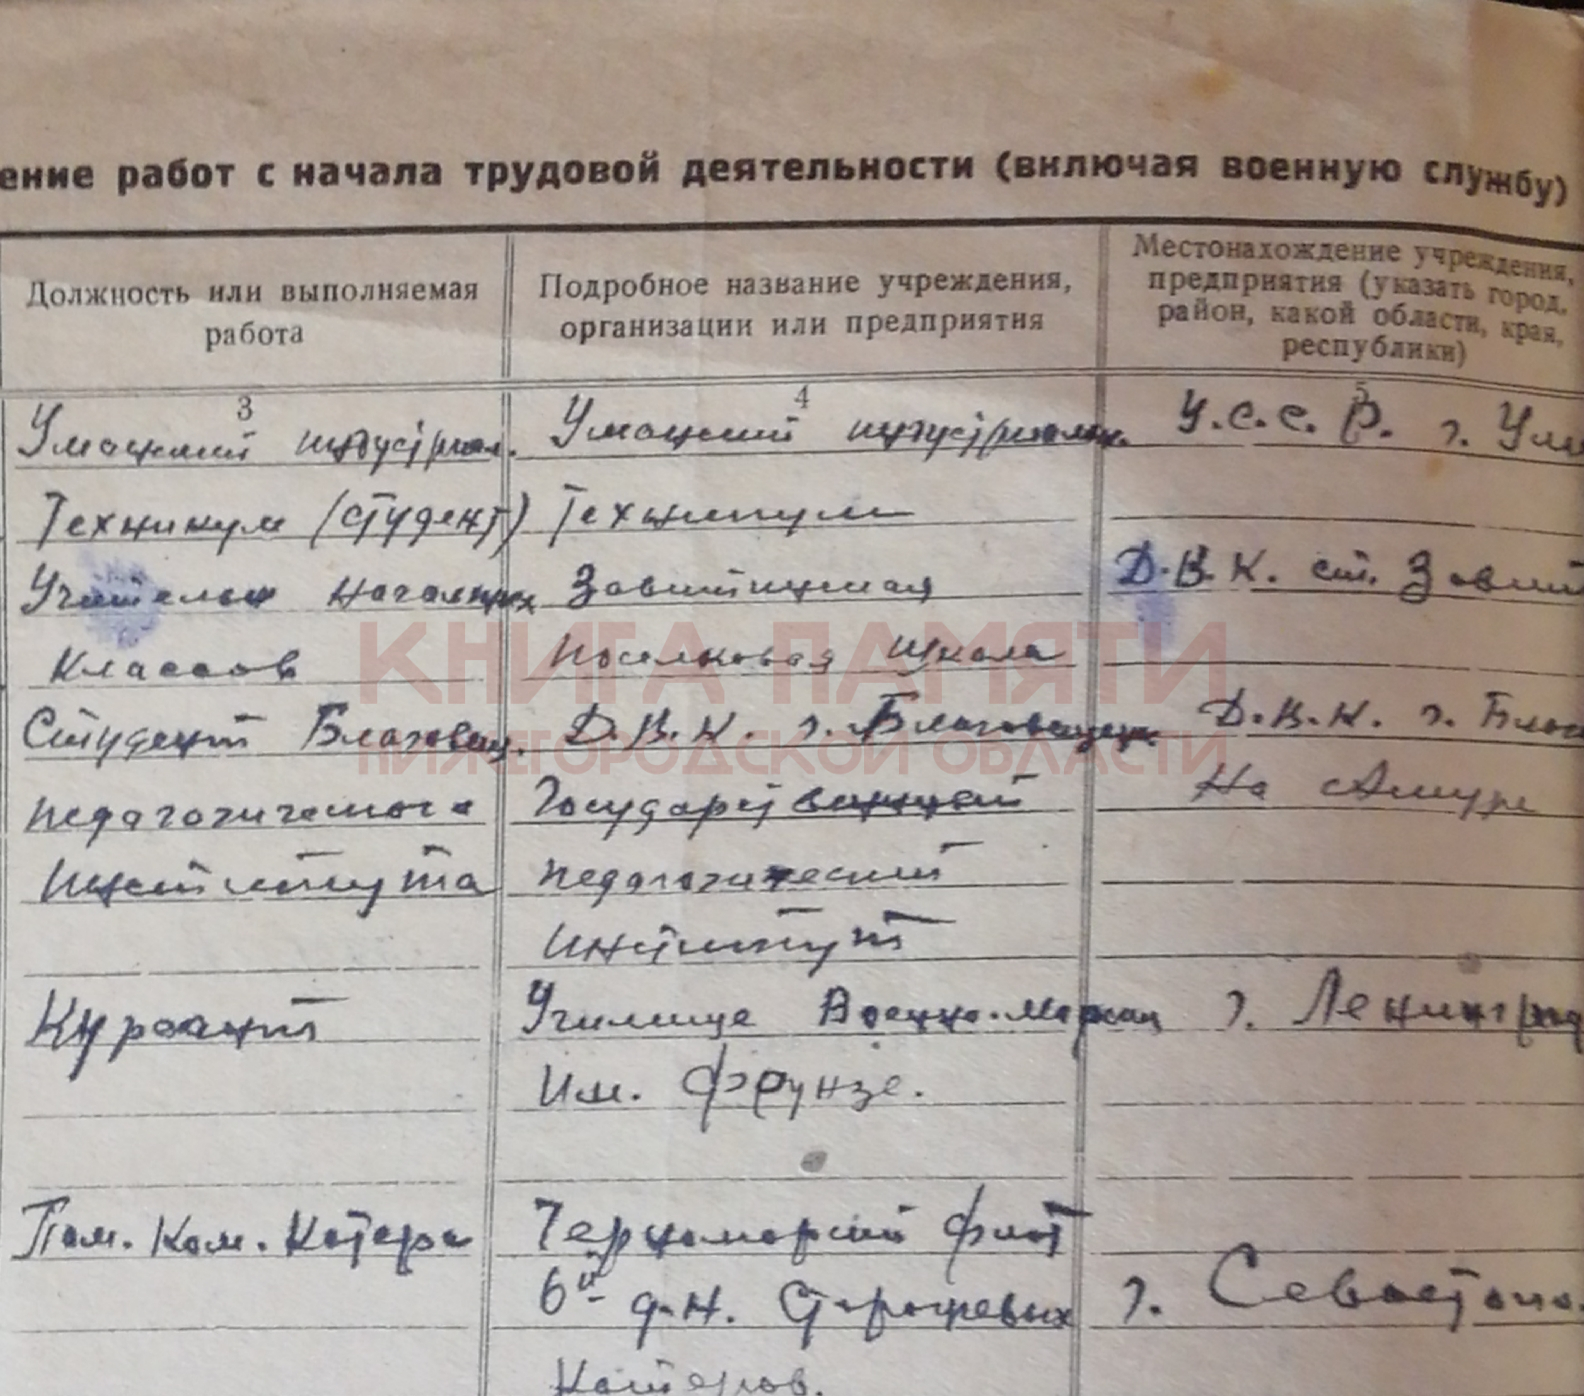 ение работ с начала трудовой деятельности (включая военную службу)
Должность или выполняемая работа
Подробное название учреждения, организации или предприятия
Местонахождение учреждения, предприятия (указать город, район, какой области, края, республики)
3 4 5
Уманский индустриал. Уманский индустриальн. У.С.С.Р. г. Ума
Техникум (студент) Техникум
Учитель начальных Завитинская Д.В.К. ст. Завит
классов поселковая школа
Студент Благовещ. Д.В.К. г. Благовещенск Д.В.К. г. Благ
педагогического Государственный на Амуре
института педагогический
институт
Курсант Училище Военно-Морских г. Ленинград
Им. Фрунзе.
Пом. Ком. Катера Черноморский флот
6й д-н. Сторожевых г. Севастопо
Катеров.
КНИГА ПАМЯТИ
НИЖЕГОРОДСКОЙ ОБЛАСТИ